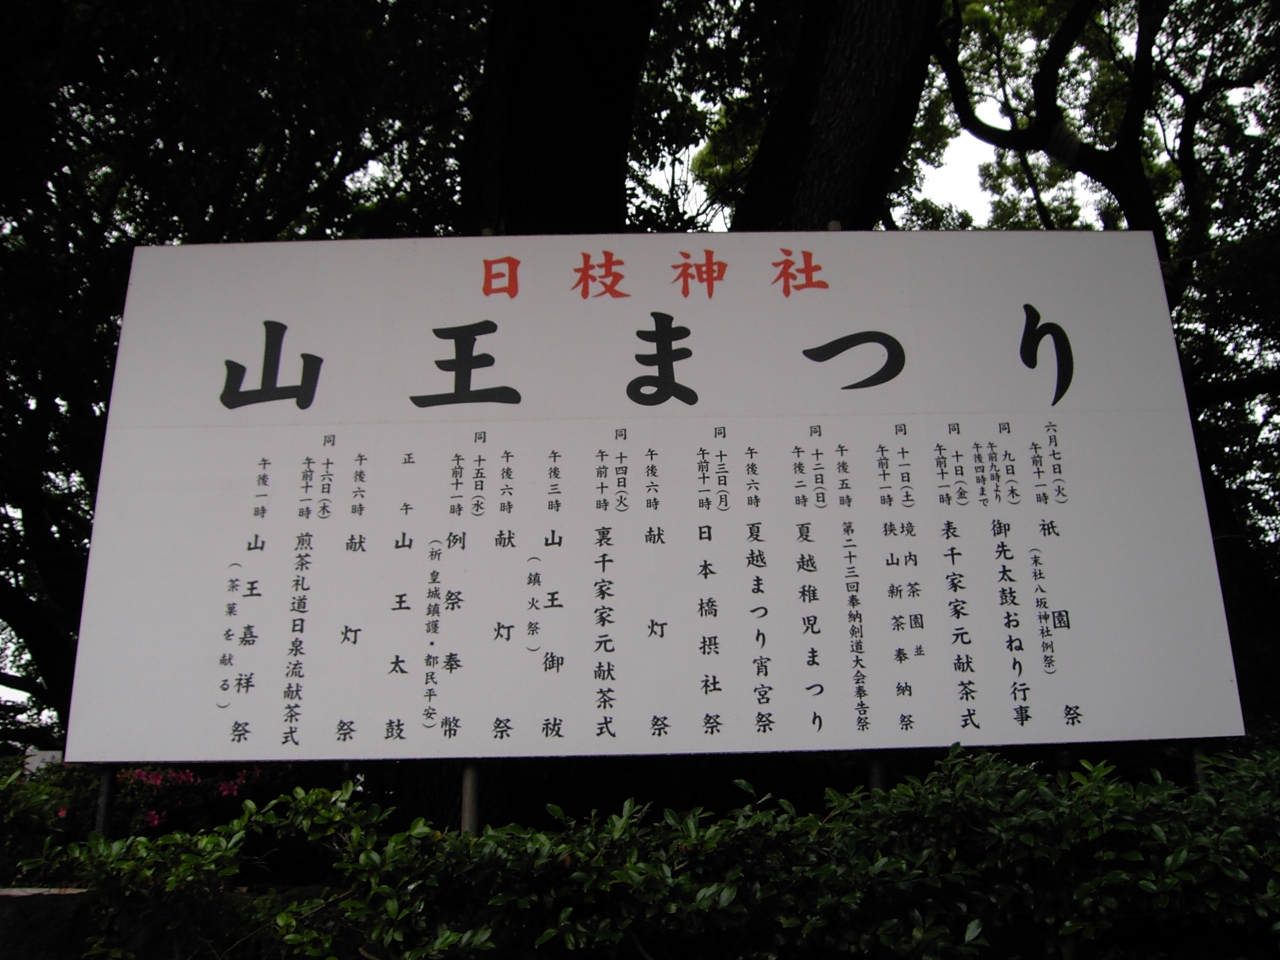 日枝神社
山王まつり
六月七日（火）
午前十一時 祇園祭
（末社八坂神社例祭）
同 九日（木）
午前九時より
午後四時まで 御先太鼓おねり行事
同 十日（金）
午前十一時 表千家家元献茶式
同 十一日（土） 境内茶園並
午前十一時 狭山新茶奉納祭
午後五時 第二十三回奉納剣道大会奉告祭
同 十二日（日）
午後二時 夏越稚児まつり
午後六時 夏越まつり宵宮祭
同 十三日（月）
午前十一時 日本橋摂社祭
午後六時 献灯祭
同 十四日（火）
午前十時 裏千家家元献茶式
午後三時 山王御祓
（鎮火祭）
午後六時 献灯祭
同 十五日（水）
午前十一時 例祭奉幣
（祈 皇城鎮護・都民平安）
正午 山王太鼓
午後六時 献灯祭
同 十六日（木）
午前十一時 煎茶礼道日泉流献茶式
午後一時 山王嘉祥祭
（茶菓を献る）